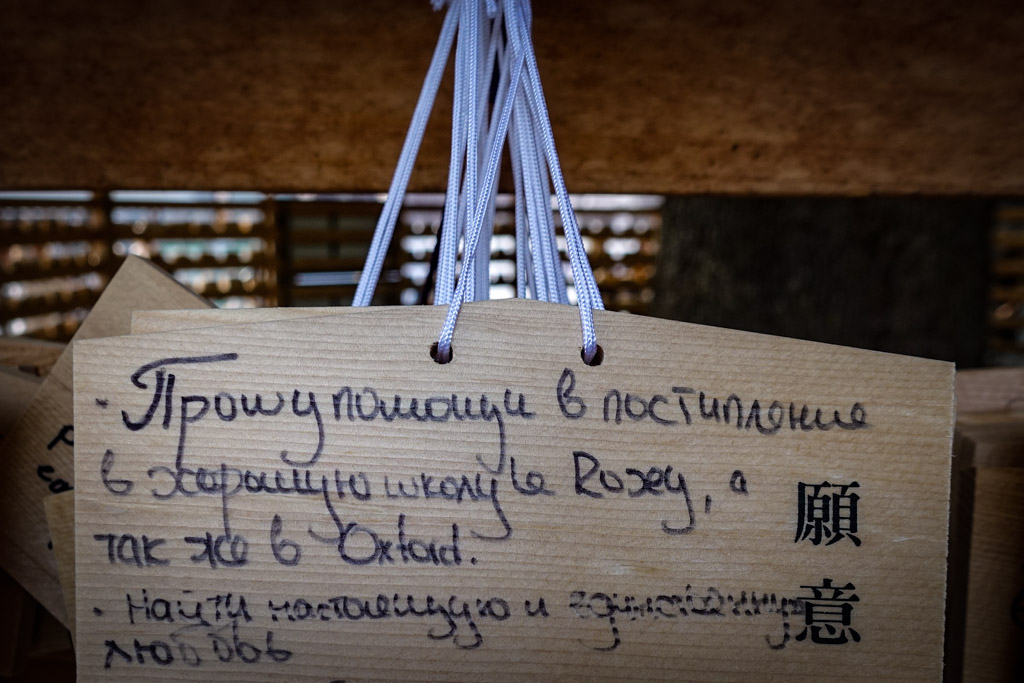 · Прошу помощи в поступление
в хорошую школу Le Rosey, а
так же в Oxford.
· Найти настоящую и единственную
любовь
願意